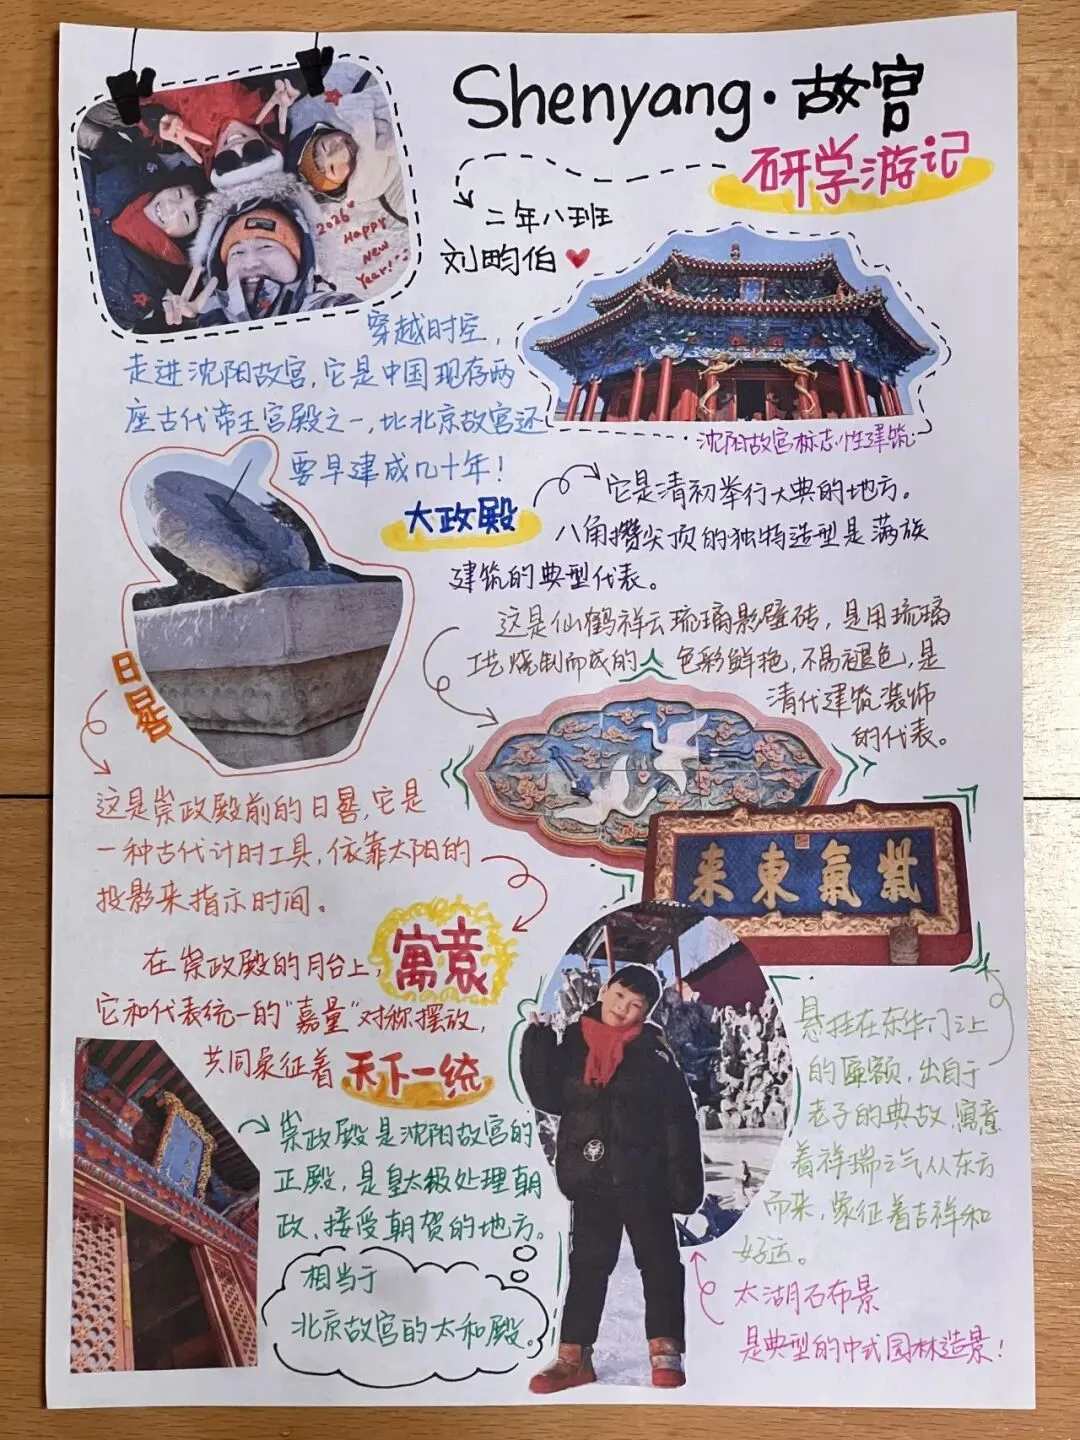 Shenyang·故宫
研学游记
二年八班
刘畇伯
2026
Happy
New
Year!
穿越时空，
走进沈阳故宫，它是中国现存两
座古代帝王宫殿之一，比北京故宫还
要早建成几十年！
沈阳故宫标志性建筑
大政殿
它是清初举行大典的地方。
八角攒尖顶的独特造型是满族
建筑的典型代表。
这是仙鹤祥云琉璃影壁砖，是用琉璃
工艺烧制而成的 色彩鲜艳，不易褪色，是
清代建筑装饰
的代表。
日晷
这是崇政殿前的日晷，它是
一种古代计时工具，依靠太阳的
投影来指示时间。
紫氣東来
寓意
在崇政殿的月台上，
它和代表统一的“嘉量”对称摆放，
共同象征着 天下一统
悬挂在东华门上
的匾额，出自于
老子的典故，寓意
着祥瑞之气从东方
而来，象征着吉祥和
好运。
崇政殿是沈阳故宫的
正殿，是皇太极处理朝
政、接受朝贺的地方。
相当于
北京故宫的太和殿。
太湖石布景
是典型的中式园林造景！